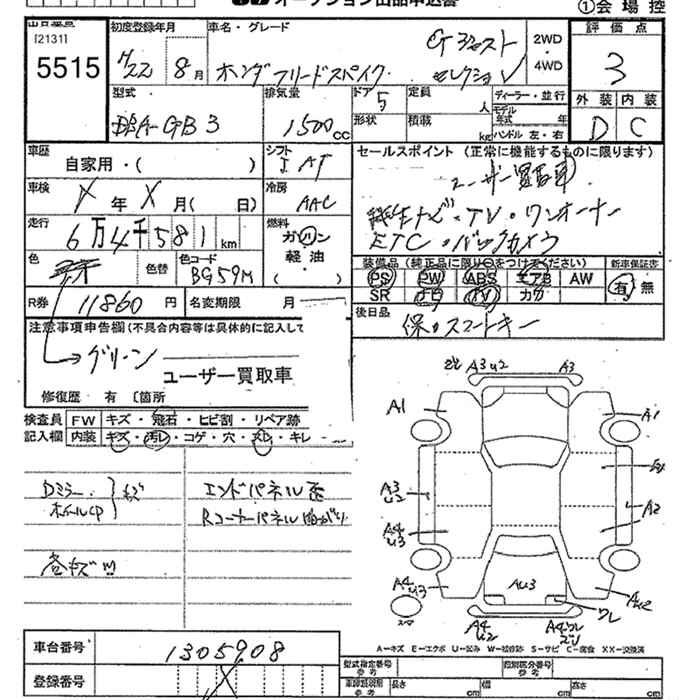 オークション出品申込書
①会場控
出品番号
[2131]
5515
初度登録年月
H22 8月
車名・グレード
G ジャスト
セレクション
ホンダ フリードスパイク
2WD
・
4WD
評価点
3
型式
DBA-GB3
排気量
1500 CC
ドア
5
形状
定員
人
積載
kg
ディーラー・並行
モデル年式 年
ハンドル 左・右
外装 内装
D C
車歴
自家用・( )
シフト
I AT
セールスポイント (正常に機能するものに限ります)
ユーザー買取車
純正ナビ・TV・ワンオーナー
ETC・バックカメラ
車検
X年 X月( 日)
冷房
AAC
走行
6万4千581km
燃料
ガソリン
軽油
( )
色
色替
色コード
BG59M
装備品(純正品に限り○をつけてください)
PS PW ABS エアB AW
SR ナビ TV カワ
新車保証書
有 無
R券 11860円
名変期限 月
後日品
保・スマートキー
注意事項申告欄(不具合内容等は具体的に記入して
グリーン
ユーザー買取車
修復歴 有 〔箇所
検査員 FW キズ・飛石・ヒビ割・リペア跡
記入欄 内装 キズ・汚レ・コゲ・穴・スレ・キレ
Dミラー
ホイールCP
キズ
エンドパネル歪
Rコーナーパネル曲がり
各キズ
A3U2 A3
A1 A1
A3
U2
A2
A4
U3
AU3
A4
U3
AU2
ワレ
スマ
A4
U2
A4ワレ
A=キズ E=エクボ U=凹み W=補修跡 S=サビ C=腐食 XX=交換済
車台番号 1305908
登録番号
型式指定番号
参考
類別区分番号
参考
車両諸元
参考
長さ cm
幅 cm
高さ cm